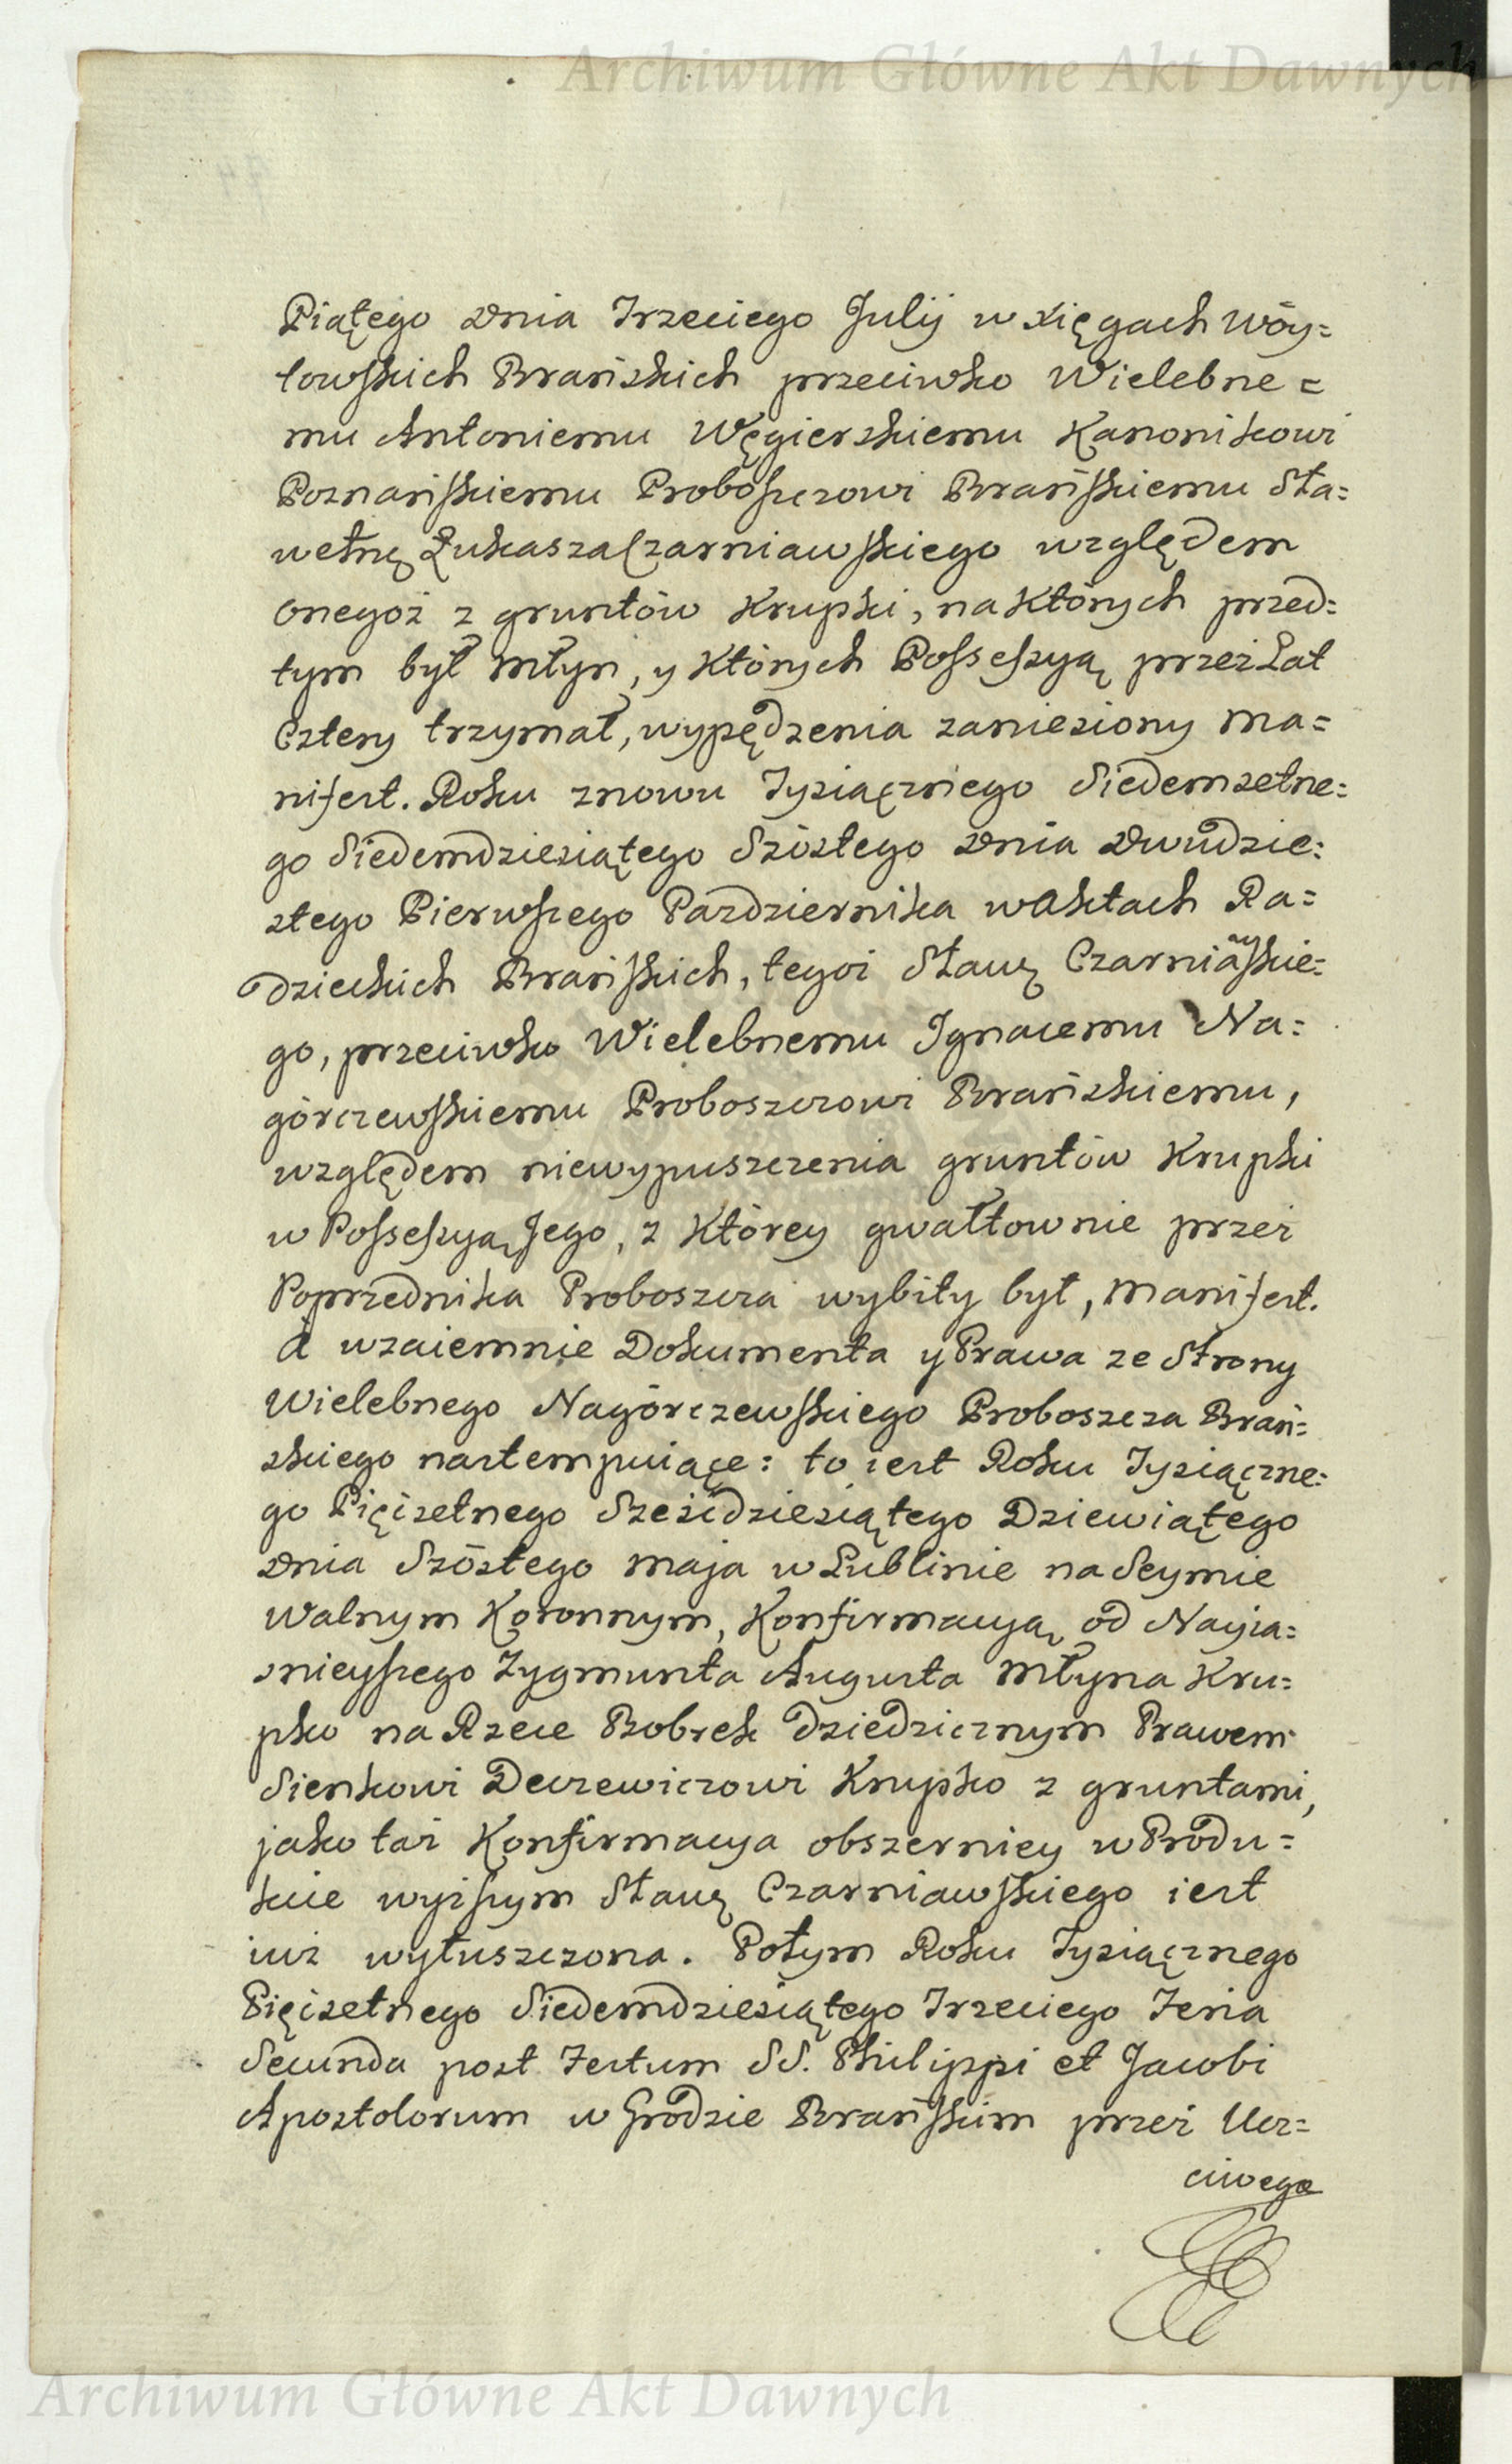 Archiwum Główne Akt Dawnych
Piątego Dnia Trzeciego Julij w xięgach Wóy=
towskich Brańskich przeciwko Wielebne=
mu Antoniemu Węgierskiemu Kanonikowi
Poznańskiemu Proboszczowi Brańskiemu Sła=
wetnę Łukasza Czarniawskiego względem
onegoż z gruntów Krupki, na których przed=
tym był Młyn, y których Possessyą przez Lat
Cztery trzymał, wypędzenia zaniesiony Ma=
nifest. Roku znowu Tysiącznego Siedemsetne=
go Siedemdziesiątego Szóstego Dnia Dwudzie=
stego Pierwszego Pazdziernika w Aktach Ra=
dzieckich Brańskich, tegoż Sławę Czarniawskie=
go, przeciwko Wielebnemu Ignacemu Na=
górczewskiemu Proboszczowi Brańskiemu,
względem niewypuszczenia gruntów Krupki
w Possessyą Jego, z którey gwałtownie przez
Poprzednika Proboszcza wybity był, Manifest.
A wzaiemnie Dokumenta y Prawa ze Strony
Wielebnego Nagórczewskiego Proboszcza Brań=
skiego nastempuiące: to iest Roku Tysiączne=
go Pięćsetnego Sześćdziesiątego Dziewiątego
Dnia Szóstego Maja w Lublinie na Seymie
Walnym Koronnym, Konfirmacyą od Nayia=
snieyszego Zygmunta Augusta Młyna Kru=
pko na Rzece Bobrek dziedzicznym Prawem
Sienkowi Deczewiczowi Krupko z gruntami,
jako taż Konfirmacya obszerniey w Produ=
kcie wyższym Sławę Czarniawskiego iest
iuż wyłuszczona. Potym Roku Tysiącznego
Pięćsetnego Siedemdziesiątego Trzeciego Feria
Secunda post Festum SS. Philippi et Jacobi
Apostolorum w Grodzie Brańskim przez Ucz=
ciwego
Archiwum Główne Akt Dawnych